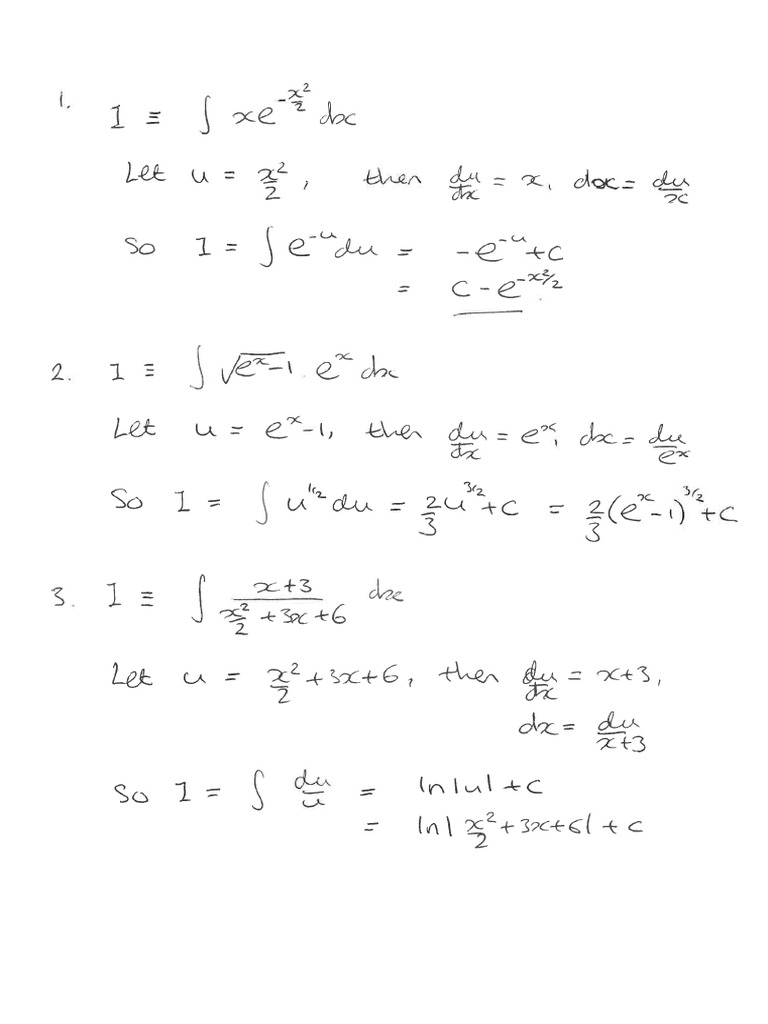 1. I ≡ ∫ xe^{-x²/2} dx
Let u = x²/2, then du/dx = x, dx = du/x
So I = ∫ e^{-u} du = -e^{-u} + c
= c - e^{-x²/2}
2. I ≡ ∫ √(e^x-1) . e^x dx
Let u = e^x-1, then du/dx = e^x, dx = du/e^x
So I = ∫ u^{1/2} du = 2/3 u^{3/2} + c = 2/3 (e^x-1)^{3/2} + c
3. I ≡ ∫ (x+3)/(x²/2 + 3x + 6) dx
Let u = x²/2 + 3x + 6, then du/dx = x+3,
dx = du/(x+3)
So I = ∫ du/u = ln|u| + c
= ln|x²/2 + 3x + 6| + c